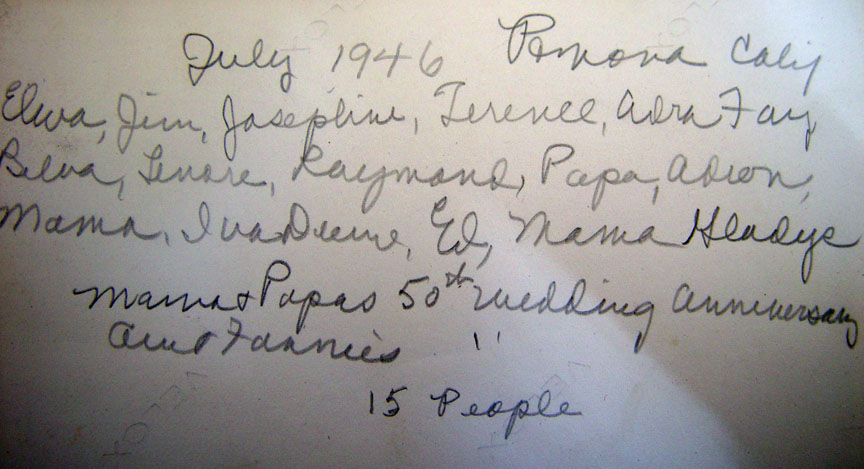 July 1946 Pomona Calif
Elwa, Jim, Josephine, Terence, Adra Fay
Belva, Lenore, Raymond, Papa, Adron,
Mama, Iva, Ed, Mama Gladys
Mama & Papas 50th Wedding Anniversary
Aunt Fannies "
15 People